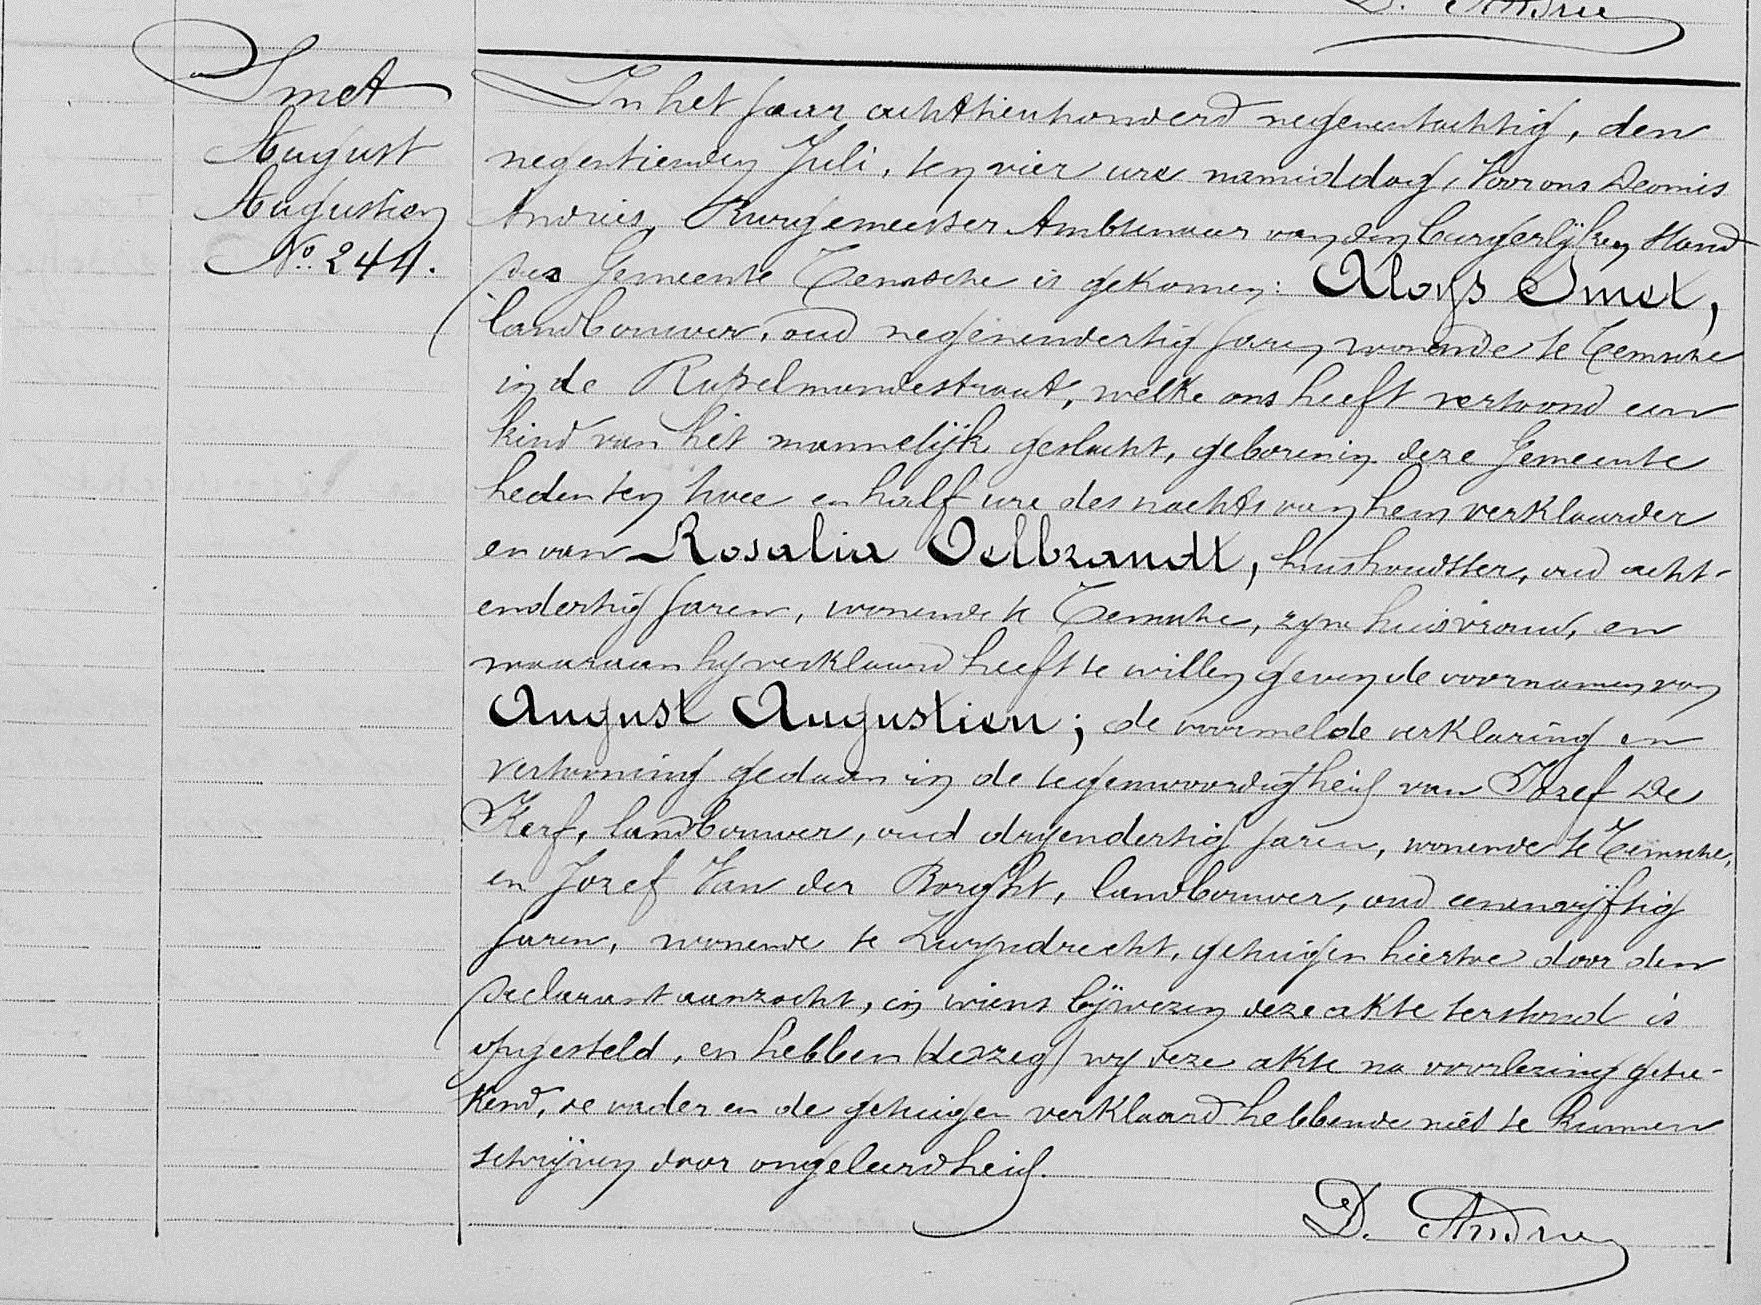 D. Andries
Smet
August
Augustien
No. 244.
In het jaar achttienhonderd negenentachtig, den
negentienden Juli, ten vier ure namiddag, Voor ons Deonis
Andries, Burgemeester Ambtenaar van den burgerlijken Stand
der Gemeente Temsche is gekomen: Aloys Smet,
landbouwer, oud negenendertig jaren, wonende te Temsche
in de Rupelmondestraat, welke ons heeft vertoond een
kind van het mannelijk geslacht, geboren in deze Gemeente
heden ten twee en half ure des nachts van hem verklaarder
en van Rosalia Oelbrandt, huishoudster, oud acht-
endertig jaren, wonende te Temsche, zyne huisvrouw, en
waaraan hy verklaard heeft te willen geven de voornamen van
August Augustien; de voormelde verklaring en
vertooning gedaan in de tegenwoordigheid van Jozef De
Kerf, landbouwer, oud dryendertig jaren, wonende te Temsche,
en Jozef Van der Borght, landbouwer, oud eenenvijftig
jaren, wonende te Zwyndrecht, getuigen hiertoe door den
declarant aanzocht, in wiens bijwezen deze akte terstond is
opgesteld, en hebben wy deze akte na voorlezing getee-
kend, de vader en de getuigen verklaard hebbende niet te kunnen
schrijven door ongeleerdheid.
D. Andries